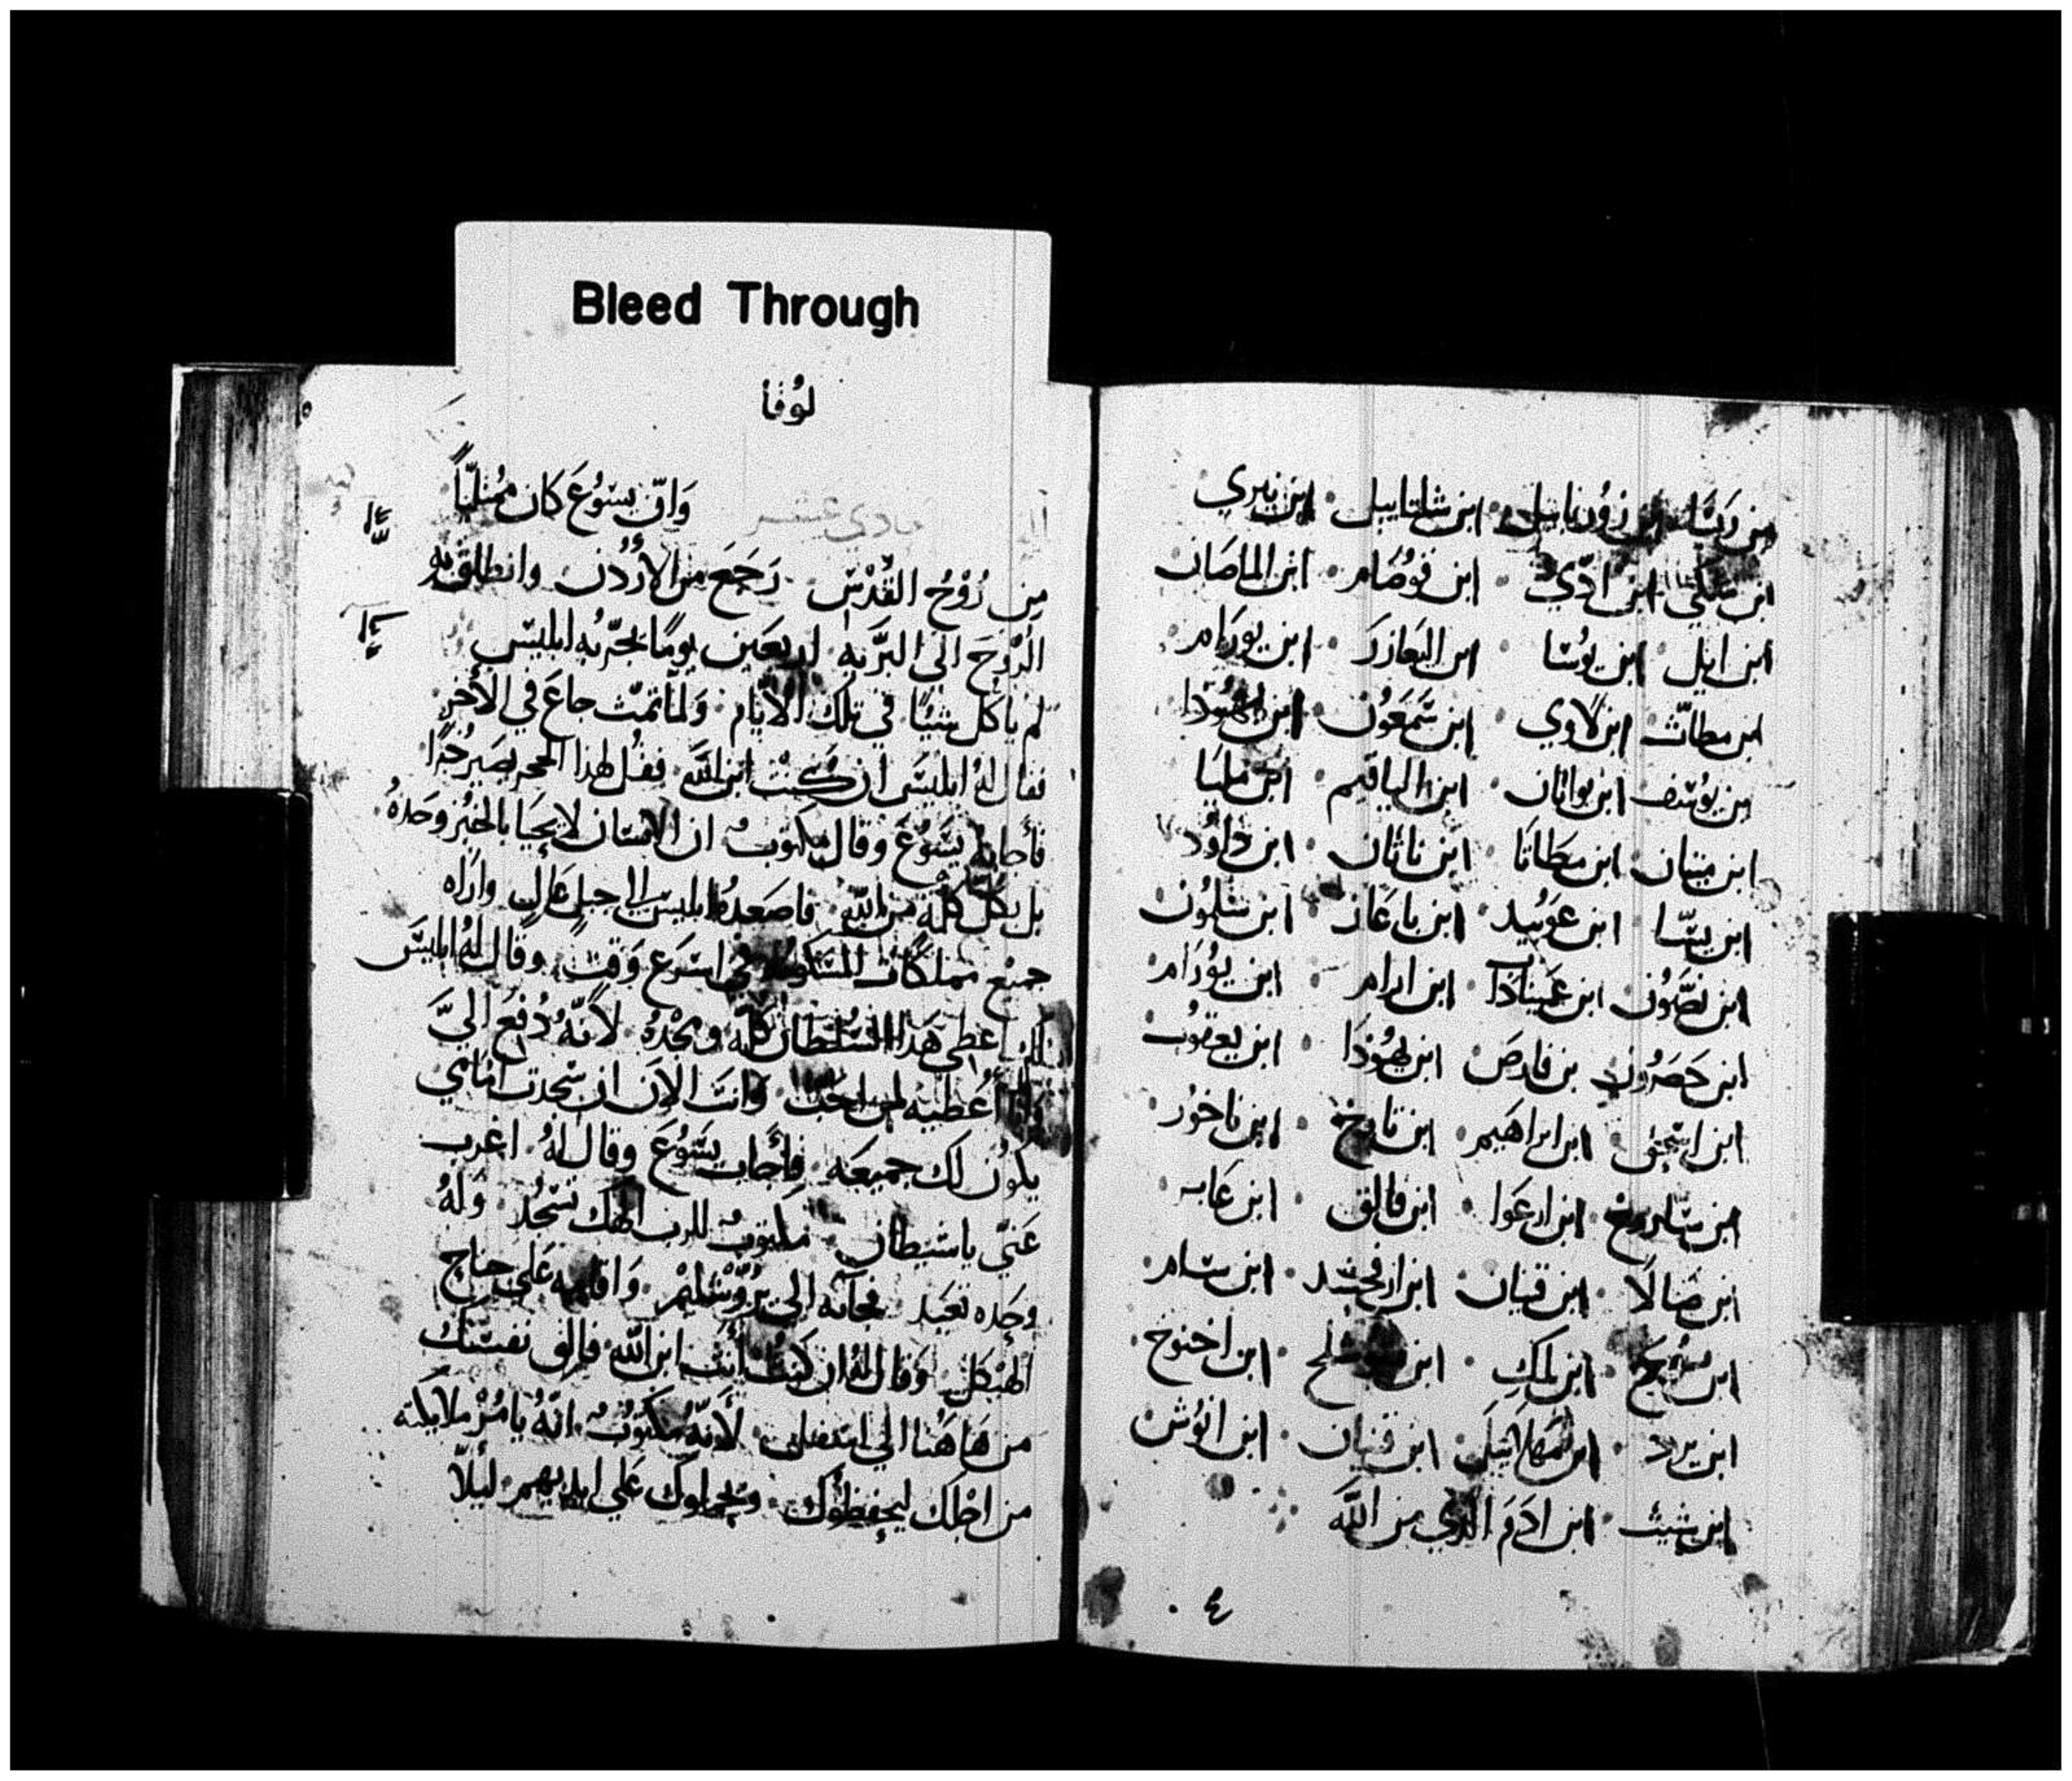 Bleed Through
بن رسّا ابن زؤرنابيل ابن شلتاييل ابن نيري
ابن ملكي ابن ادّي ابن قوصَام ابن الماصَان
ابن ايل ابن يوُسَا ابن اليَعازرَ ابن يورَام
ابن مطاتّ ابن لاوي ابن سَمعَوُن ابن يهُوذا
بن يوُسَف ابن يوانان ابن الياقيم ابن مليَا
ابن مينان ابن مطاثا ابن ناثان ابن داوُد
ابن يسَّا ابن عوَبيد ابن باعَاز ابن سَلمُون
ابن نصَّوُن ابن عَمينادَا ابن ارام ابن يوُرَام
ابن حَصَرُون بن فارصَ ابن يهُوذَا ابن يعقوُب
ابن اسَحق ابن ابراهيم ابن تارخ ابن ناخوُر
ابن سَاروخ ابن ارعَوا ابن فالق ابن عَابر
ابن صَالَا ابن قينان ابن ارفخشد ابن سَام
ابن نوُح ابن لمك ابن ابن اخنوخ
ابن يرد ابن مَهلاييل ابن قينان ابن انوُش
ابن شيث ابن ادَمَ الذي من اللَّه
٤
لوُقا
٥
وَانّ يسَوُعَ كان مُمتليًّا
مِن رُوْحُ القُدْسّ رَجَعَ من الأُرْدُن وانطلق بهِ
الرّوُحَ الى البرَّيه اربعَين يومًا يجَرّبُه ابليسَ
لم ياكل شيًا في تلك الأيّام وَلماّ تمتّ جاعَ في الأخرِ
فقال لهُ ابليسَ ان كنتْ ابن اللَّه فقُل لهذا الحجر يصَير خُبزًا
فأجابه يسَوُعَ وقال مكتوبٌ ان الانسَان لا يحيَا بالخبُز وَحَدهُ
بل بكل كلمَة من اللَّه فاصَعدهُ ابليسَ الى جبل عَالٍ وارَاه
جميْع مملكَات المسَكونه في اسَرعَ وَقتٍ وقال لهُ ابليسَ
لك اعطي هَذا السُلطان كلّه ومجْدهُ لأنَّهُ دُفعَ اليَّ
وانا أعُطيه لمن احَبّ وَانتَ الآن ان سَجدت امَامي
يكوُن لك جميعَه فأجاب يسَوُعَ وقال لهُ اغرب
عَنّي ياشَيطان مكتوبٌ للرب الهك تسَجُد وَلهُ
وحَده تعَبَد فجآبه الى يرُوْشَليمْ وَاقامه عَلى جناح
الهيْكل وَقال لهُ ان كنتَ أنت ابن اللَّه فالق نفسَك
من هَاهنا الى اسَفل لأنّهُ مكتوُبٌ انّهُ يامُرْ ملايكته
من اجْلك ليحفظوُك وَيحملوك عَلى ايديهم ليلّا